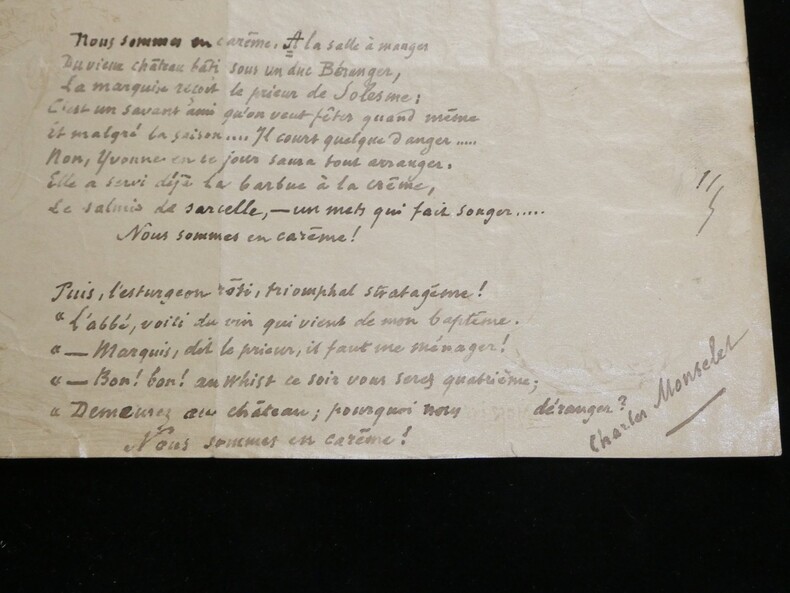 Nous sommes en carême. A la salle à manger
Du vieux château bâti sous un duc Béranger,
La marquise reçoit le prieur de Solesme;
C'est un savant ami qu'on veut fêter quand même
Et malgré la saison.... Il court quelque danger.....
Non, Yvonne en ce jour saura tout arranger.
Elle a servi déjà la barbue à la crême,
Le salmis de sarcelle, — un mets qui fait songer.....
Nous sommes en carême!
Puis, l'esturgeon rôti, triomphal stratagème!
" L'abbé, voici du vin qui vient de mon baptême.
" — Marquis, dit le prieur, il faut me ménager!
" — Bon! bon! au whist ce soir vous serez quatrième;
" Demeurez au château; pourquoi nous déranger?
Nous sommes en carême!
Charles Monselet